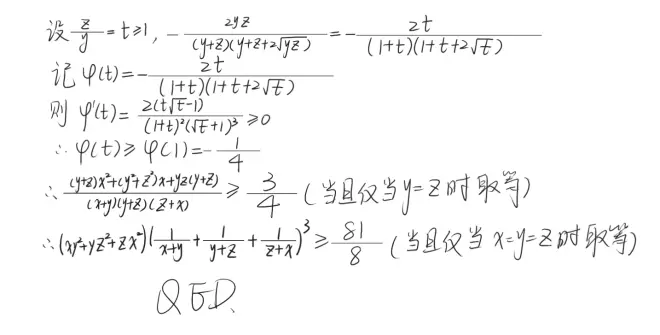 设 z/y = t ≥ 1, - 2yz/((y+z)(y+z+2√yz)) = - 2t/((1+t)(1+t+2√t))
记 φ(t) = - 2t/((1+t)(1+t+2√t))
则 φ'(t) = 2(t√t-1)/((1+t)²(√t+1)³) ≥ 0
∴ φ(t) ≥ φ(1) = - 1/4
∴ ((y+z)x²+(y²+z²)x+yz(y+z))/((x+y)(y+z)(z+x)) ≥ 3/4 (当且仅当 y=z 时取等)
∴ (xy²+yz²+zx²)(1/(x+y) + 1/(y+z) + 1/(z+x))³ ≥ 81/8 (当且仅当 x=y=z 时取等)
QED.